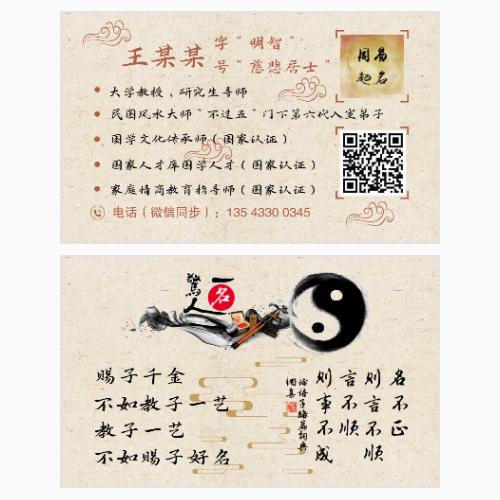 王某某 字“明智”
号“慈悲居士”
周易
起名
大学教授、研究生导师
民国风水大师“不过五”门下第六代入室弟子
国学文化传承师（国家认证）
国家人才库国学人才（国家认证）
家庭情商教育指导师（国家认证）
电话（微信同步）：135 4330 0345
一名
驚人
赐子千金
不如教子一艺
教子一艺
不如赐子好名
名不正
则言不顺
言不顺
则事不成
论语子路篇词典